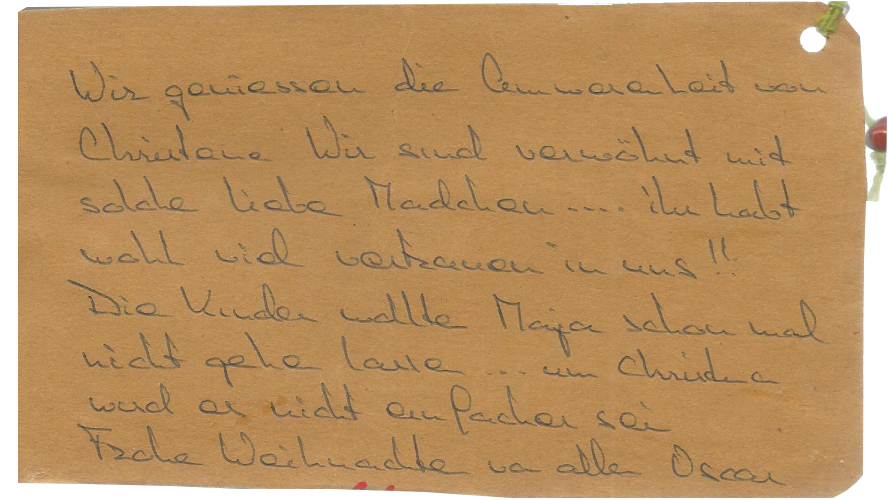 Wir geniessen die Annwesenheit von
Christene Wir sind verwöhnt mit
solche liebe Madchen .... ihr habt
wohl viel vertrauen in uns !!
Die Kinder wollte Maija schon mal
nicht gehe lasse ... um Christena
wird es nicht einfacher sei
Frohe Weihnachte von allen Oscar